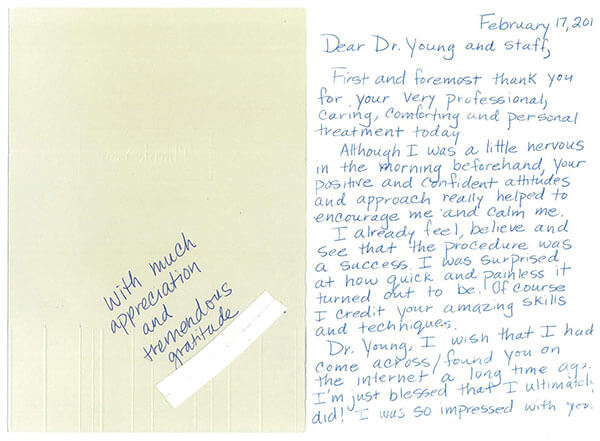 With much
appreciation
and
tremendous
gratitude
February 17, 201
Dear Dr. Young and staff,
First and foremost thank you
for your very professional,
caring, comforting and personal
treatment today.
Although I was a little nervous
in the morning beforehand, your
positive and confident attitudes
and approach really helped to
encourage me and calm me.
I already feel, believe and
see that the procedure was
a success. I was surprised
at how quick and painless it
turned out to be. Of course
I credit your amazing skills
and techniques.
Dr. Young, I wish that I had
come across/found you on
the internet a long time ago.
I'm just blessed that I ultimatel
did! I was so impressed with you.